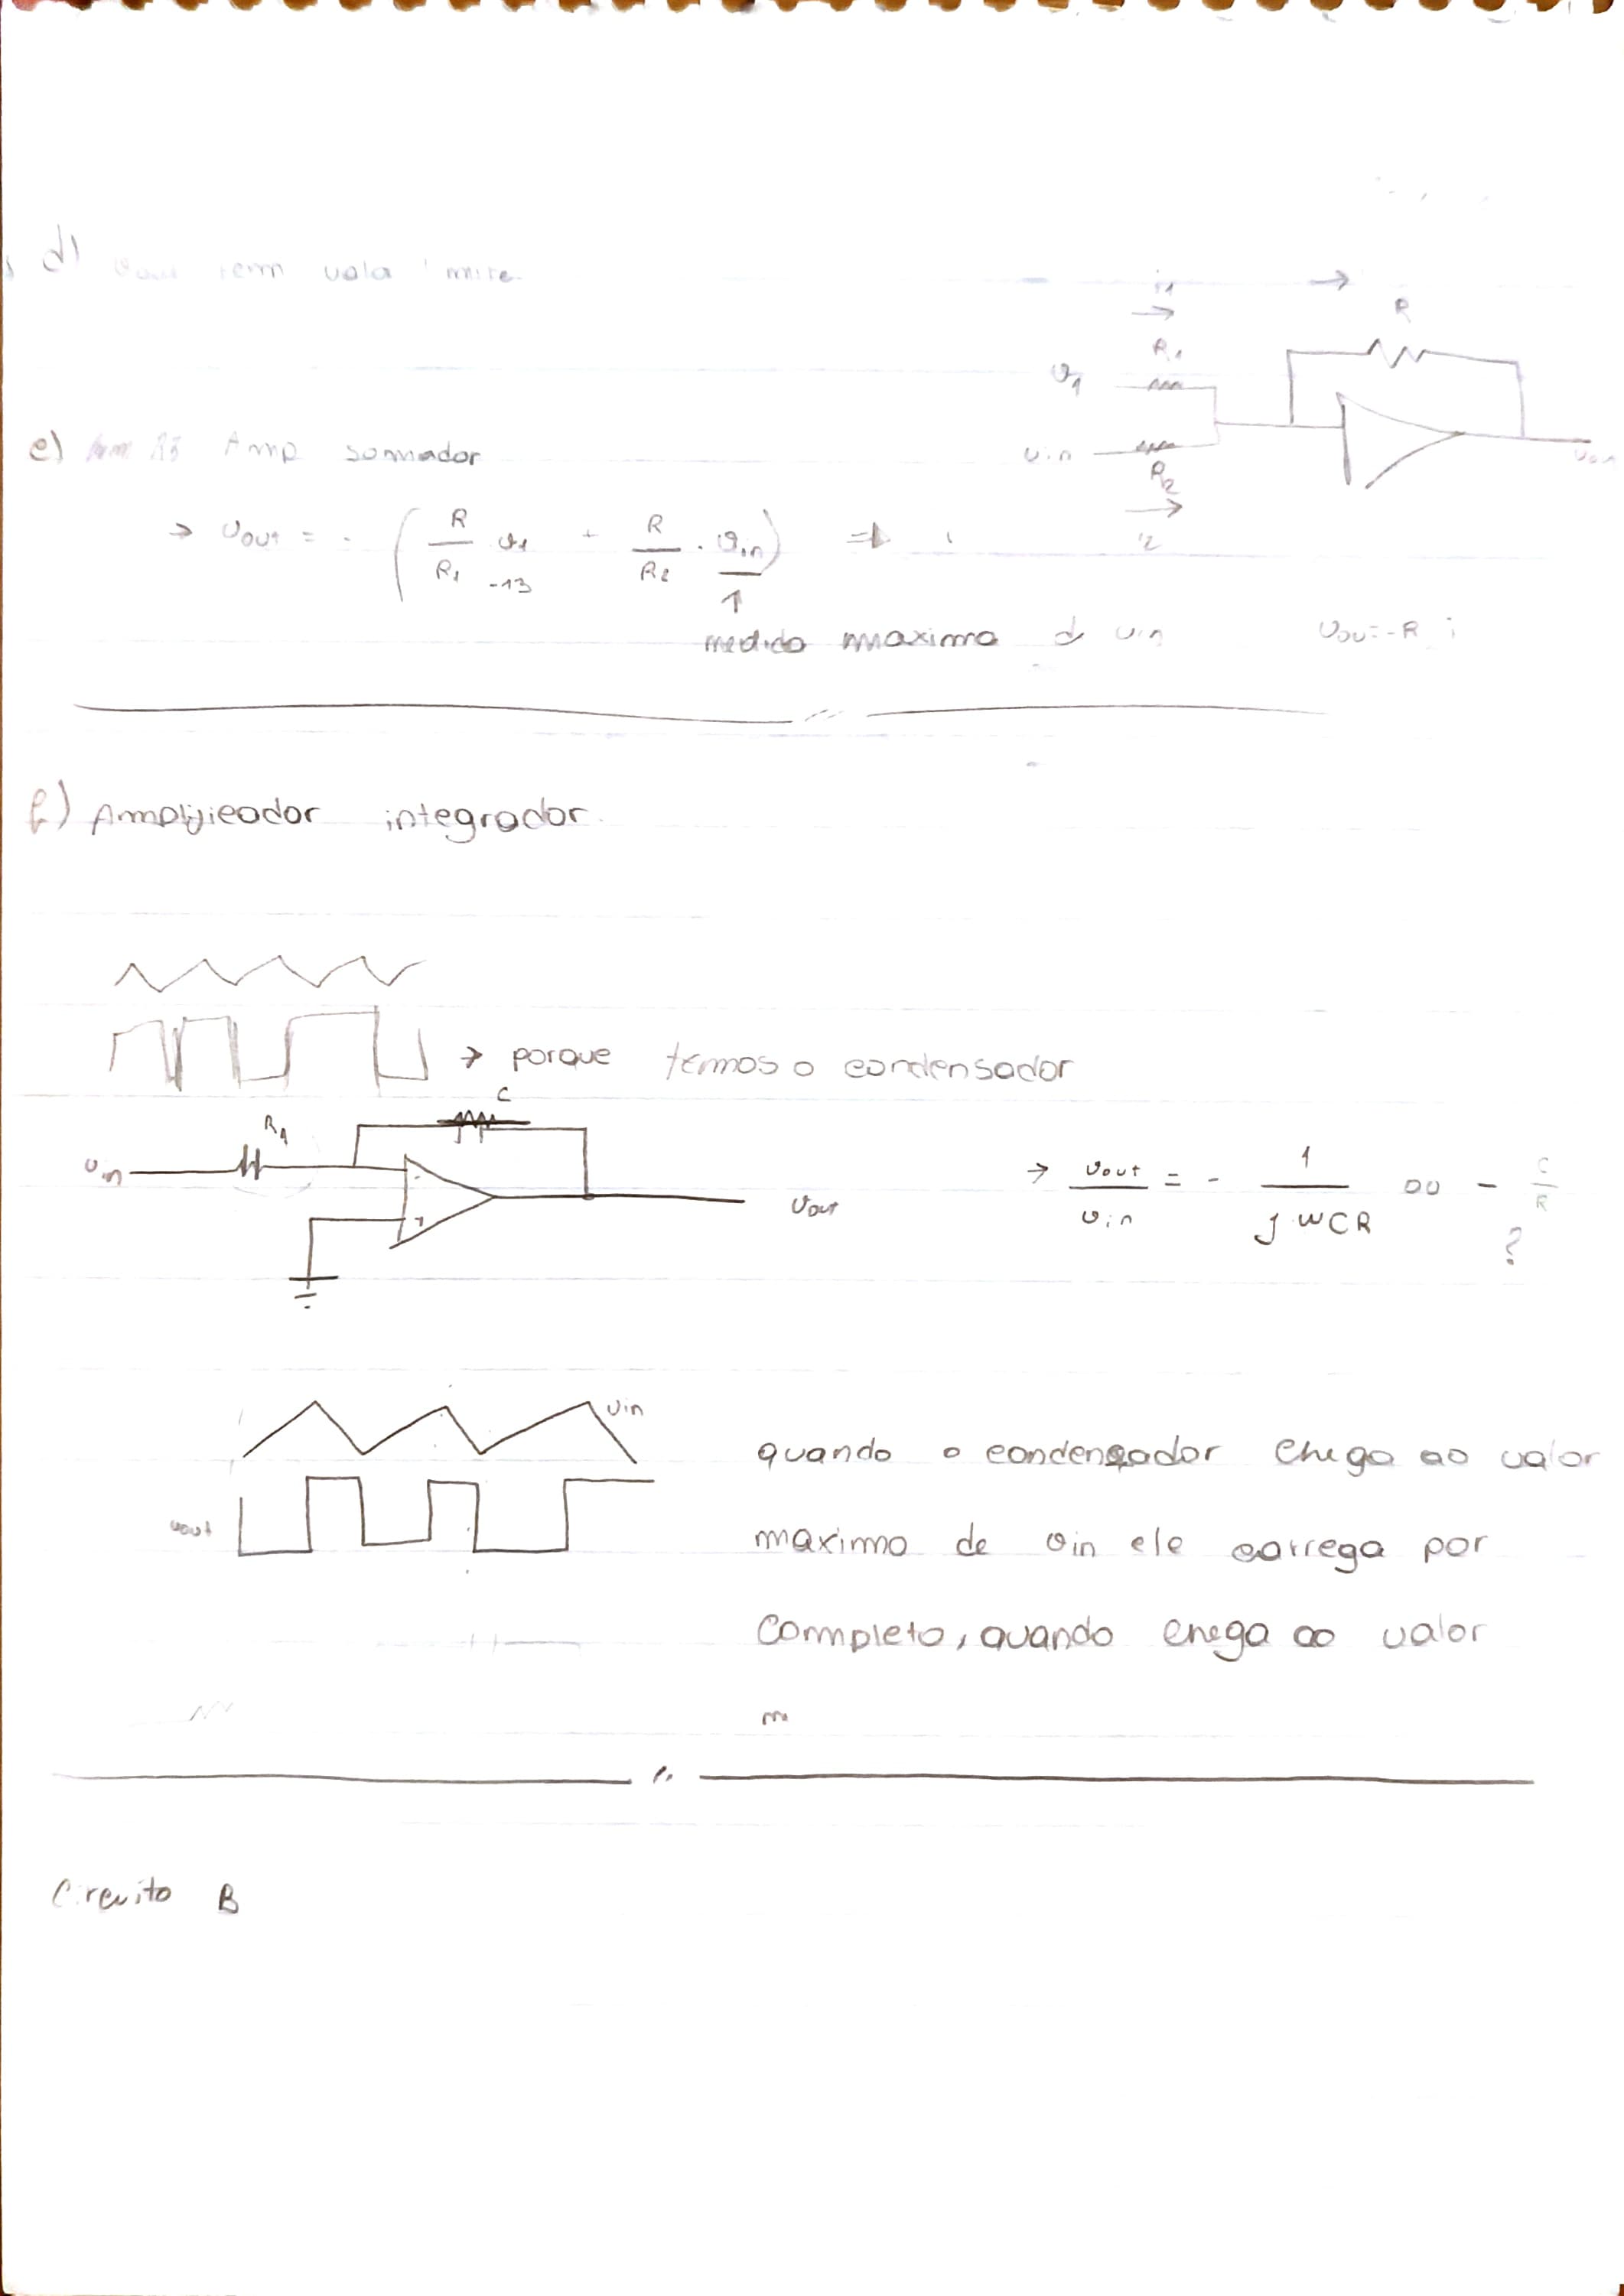 d) vout tem valor limite
i1
R
R1
v1
e) Amp somador
vin
R2
vout
→ vout = - ( R/R1 v1 + R/R2 . vin ) ⇒
-13
i2
↑
medido maximo d vin
vou=-R i
f) Amplificador integrador.
→ porque termos o condensador
C
R1
vin
vout
→ vout/vin = - 1/jwCR ou - C/R
?
vin
vout
quando o condensador chega ao valor
maximo de vin ele carrega por
completo, quando chega ao valor
m
Circuito B